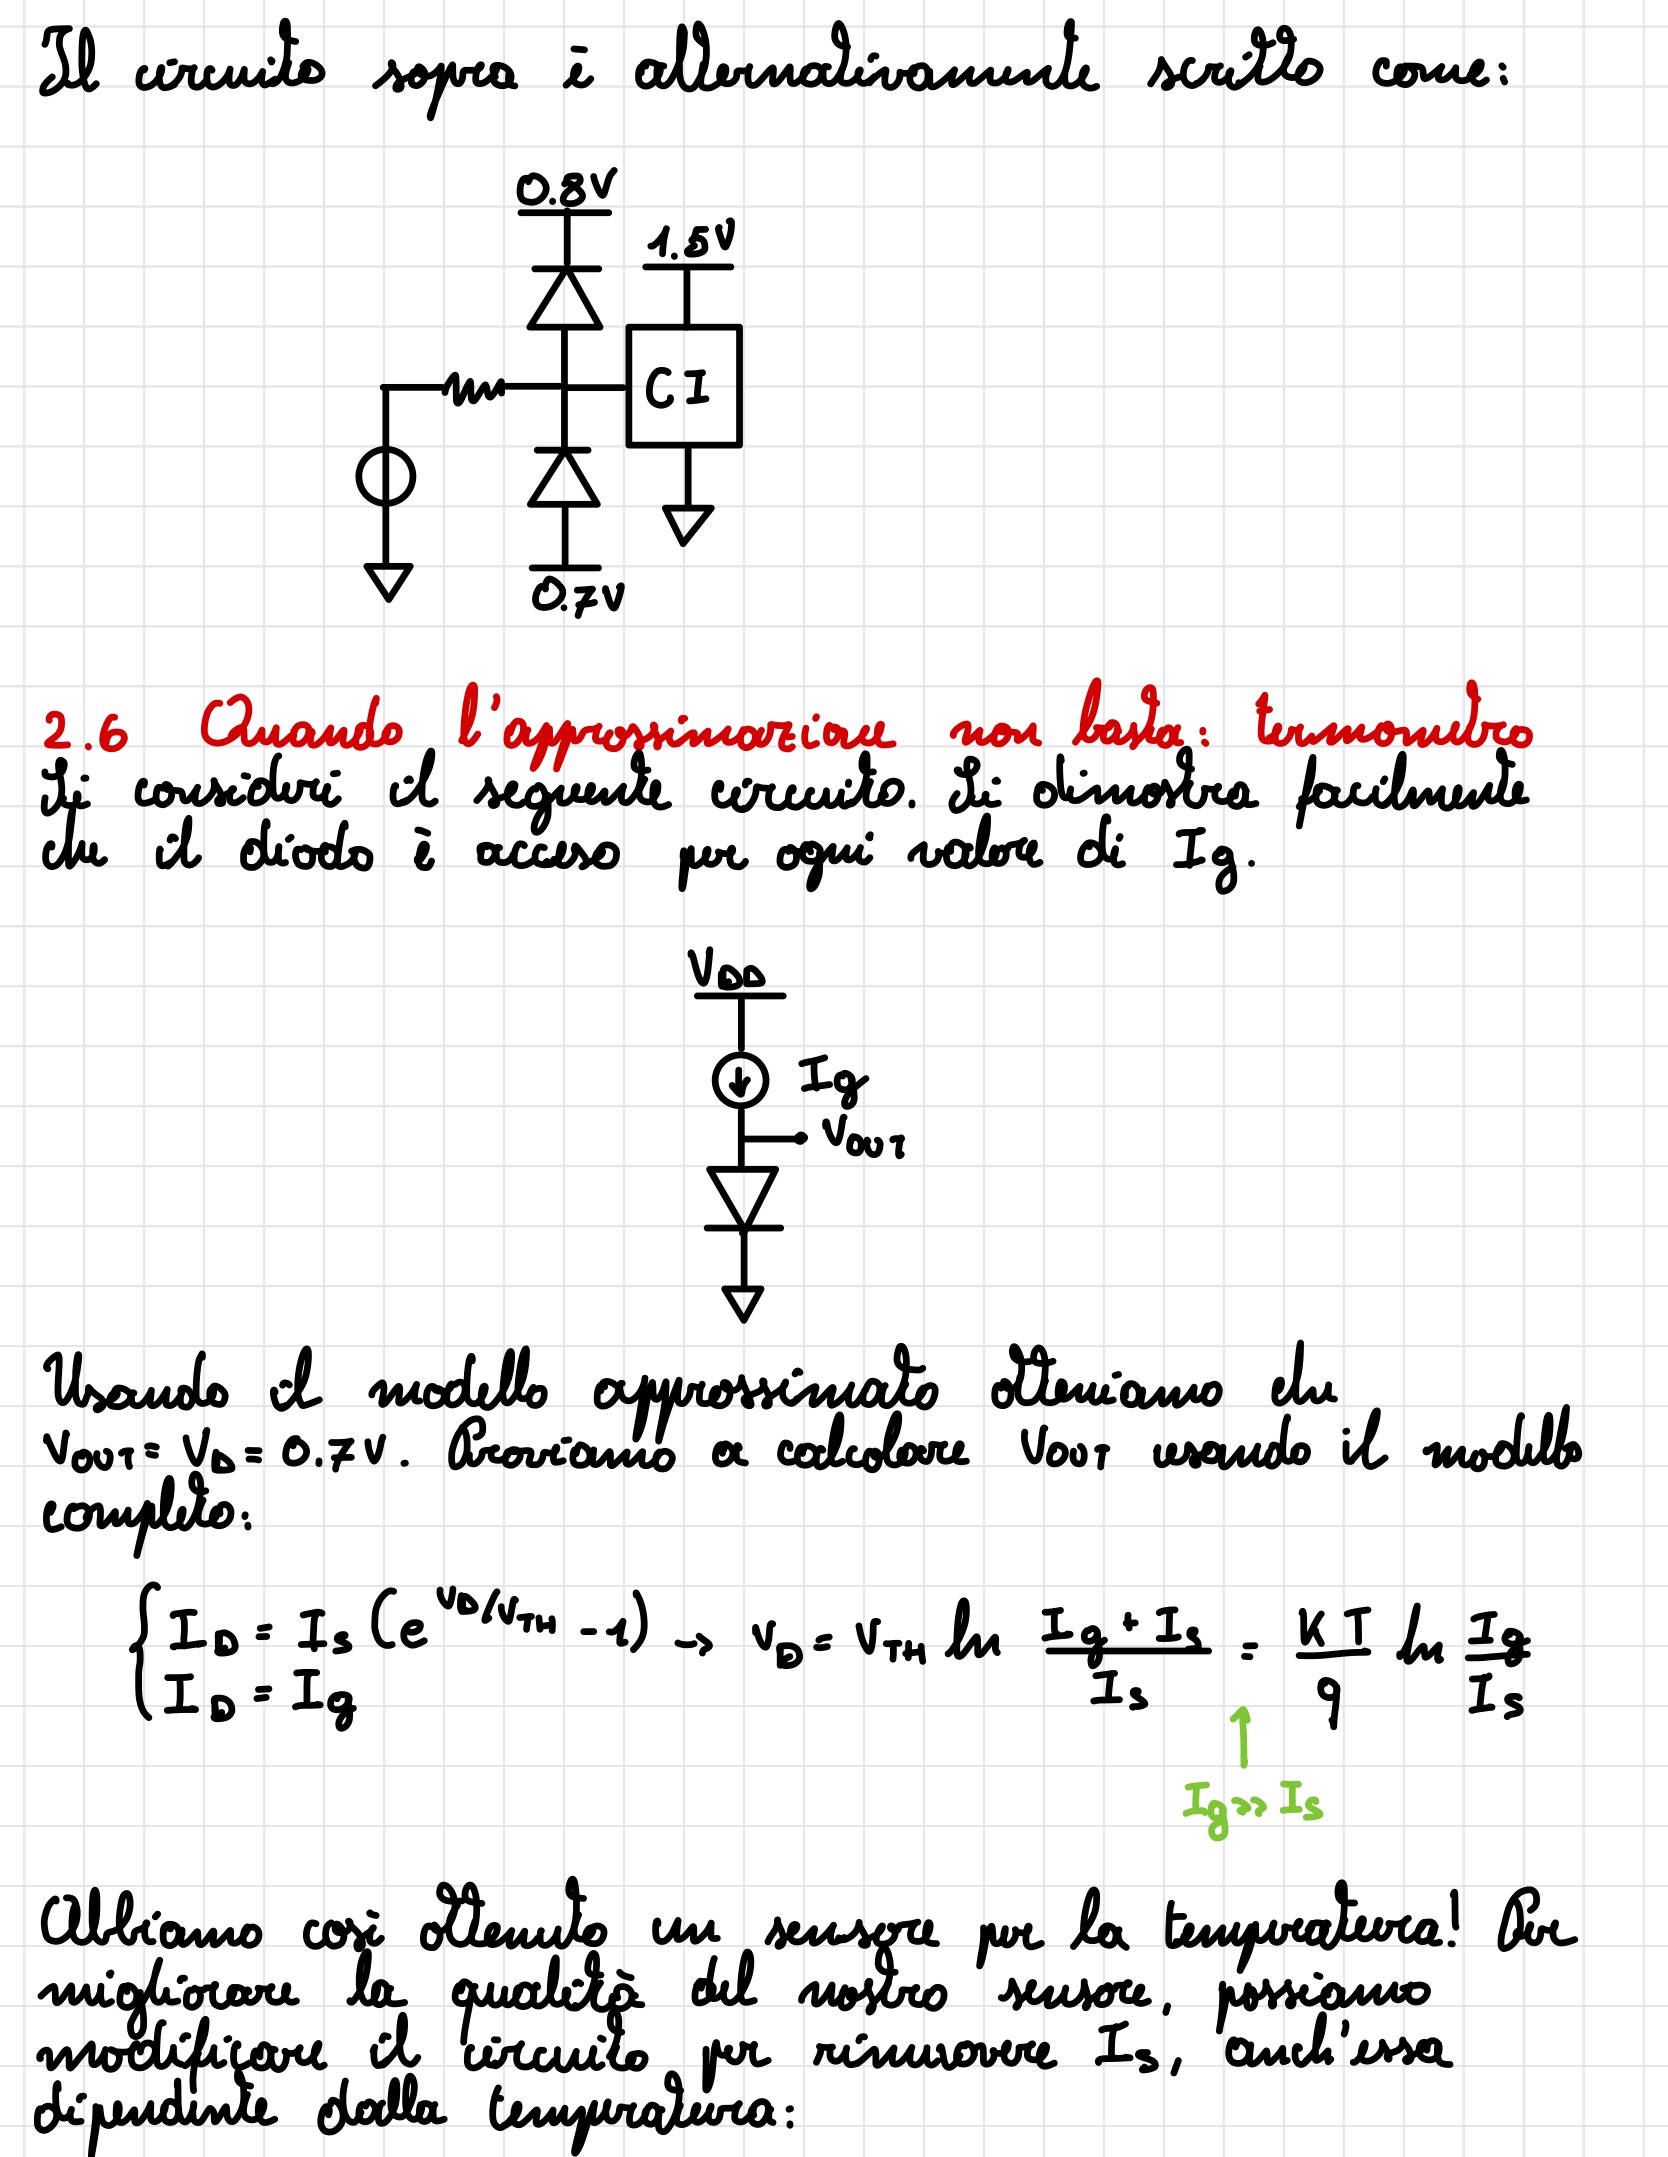 Il circuito sopra è alternativamente scritto come:
0.8V
1.5V
CI
0.7V
2.6 Quando l'approssimazione non basta: termometro
Si consideri il seguente circuito. Si dimostra facilmente
che il diodo è acceso per ogni valore di Ig.
VDD
Ig
VOUT
Usando il modello approssimato otteniamo che
VOUT = VD = 0.7V. Proviamo a calcolare VOUT usando il modello
completo:
{ ID = Is (e^(VD/VTH) - 1) → VD = VTH ln (Ig + Is)/Is = KT/q ln Ig/Is
ID = Ig
↑
Ig >> Is
Abbiamo così ottenuto un sensore per la temperatura! Per
migliorare la qualità del nostro sensore, possiamo
modificare il circuito per rimuovere Is, anch'essa
dipendente dalla temperatura: